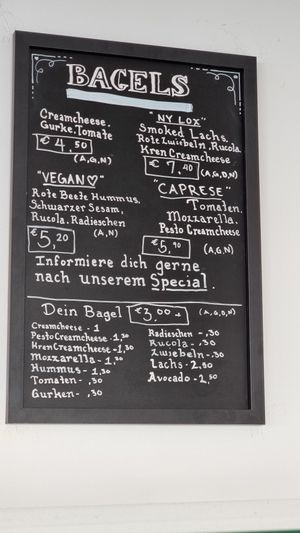 BAGELS
Creamcheese,
Gurke, Tomate
€ 4,50
(A,G,N)
"NY LOX"
Smoked Lachs,
Rote Zwiebeln, Rucola,
Kren Creamcheese
€ 7,40 (A,G,D,N)
"VEGAN♡"
Rote Beete Hummus,
Schwarzer Sesam,
Rucola, Radieschen
€ 5,20 (A,N)
"CAPRESE"
Tomaten,
Mozzarella,
Pesto Creamcheese
€ 5,90 (A,G,N)
Informiere dich gerne
nach unserem Special.
Dein Bagel €3,00.- (A,G,D,N)
Creamcheese - 1
Pesto Creamcheese - 1,30
Kren Creamcheese - 1,30
Mozzarella - 1,30
Hummus - 1,30
Tomaten - ,30
Gurken - ,30
Radieschen - ,30
Rucola - ,30
Zwiebeln - 30
Lachs - 2,80
Avocado - 2,50